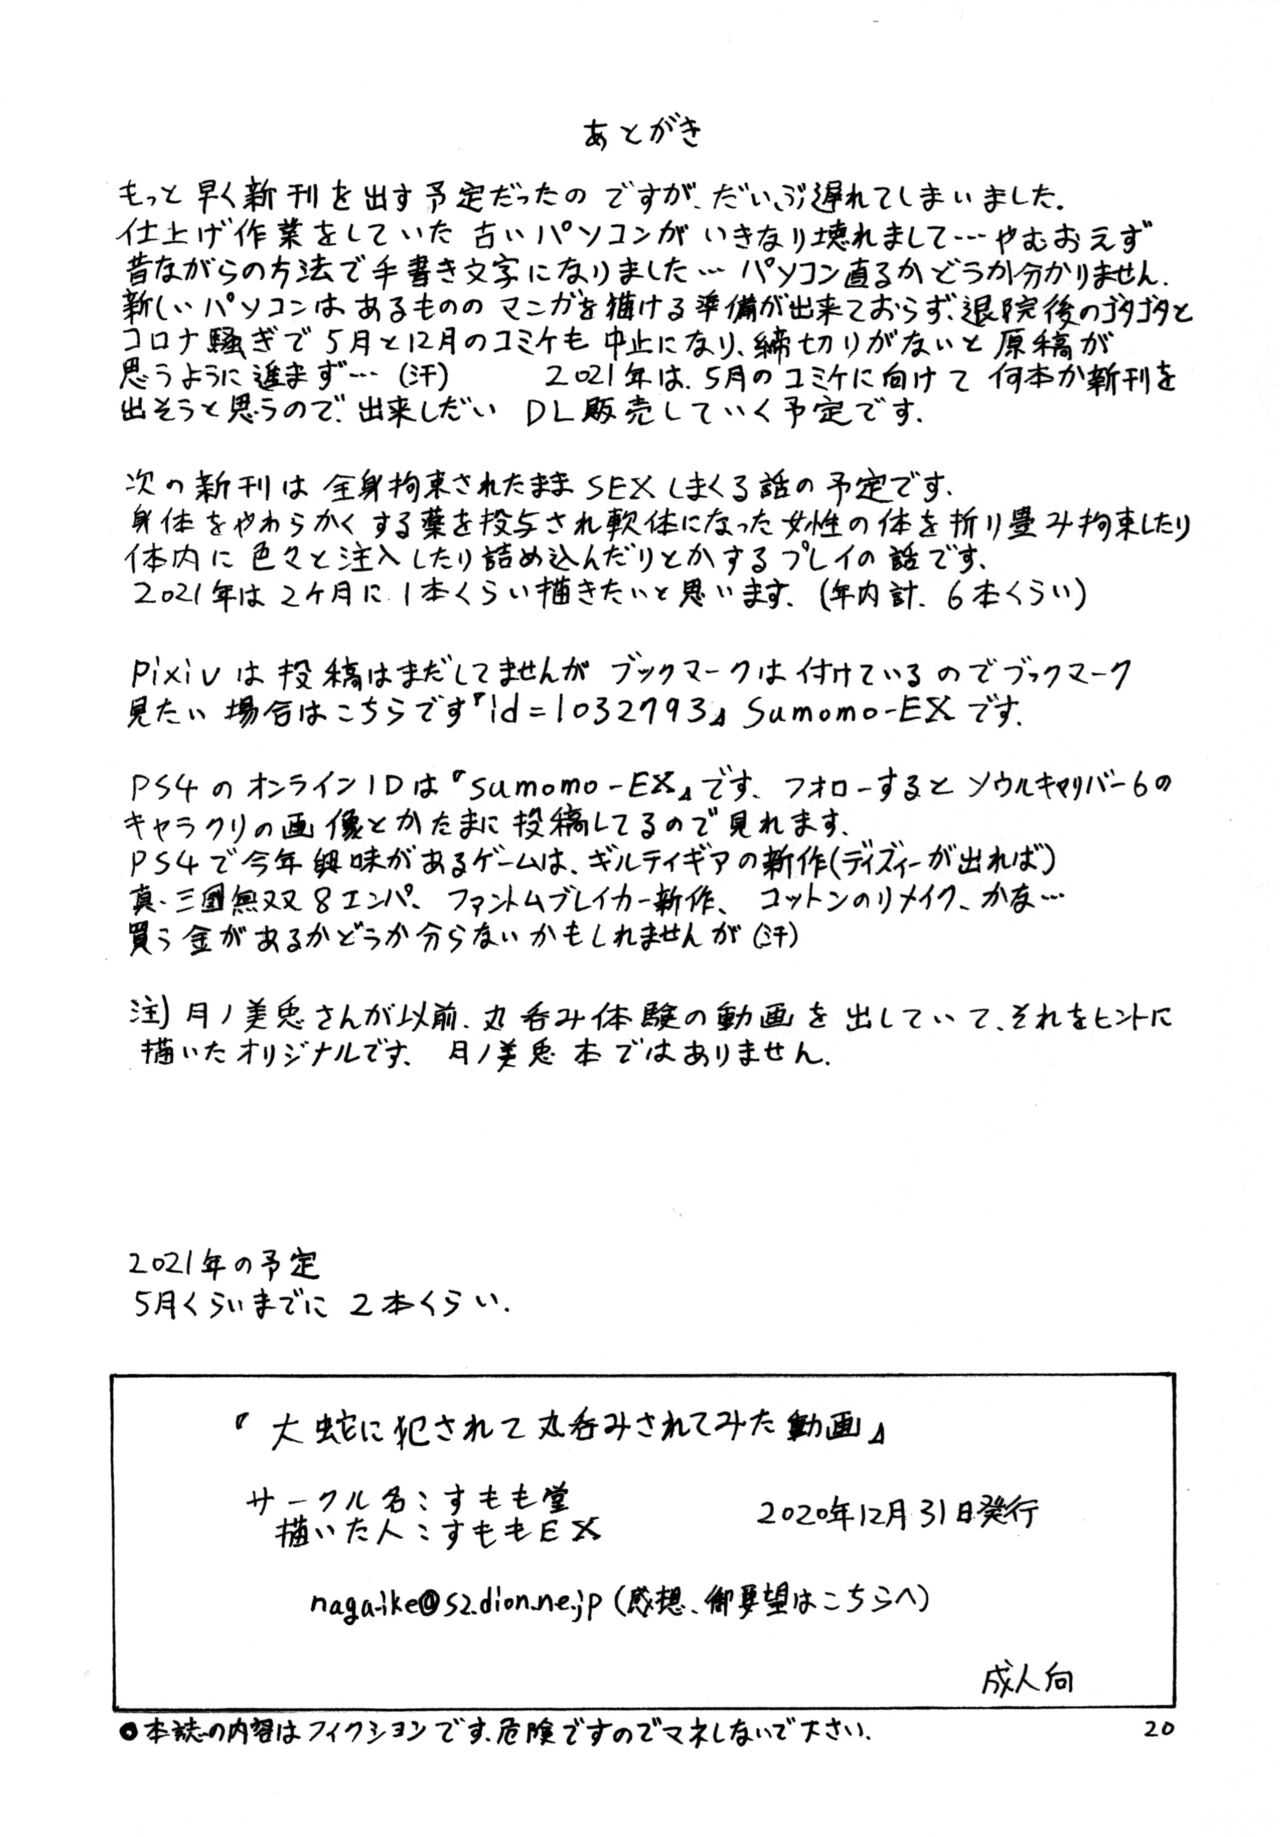 あとがき
もっと早く新刊を出す予定だったのですが、だいぶ遅れてしまいました.
仕上げ作業をしていた古いパソコンがいきなり壊れまして…やむおえず
昔ながらの方法で手書き文字になりました… パソコン直るかどうか分かりません.
新しいパソコンはあるものの マンガを描ける準備が出来ておらず、退院後のゴタゴタと
コロナ騒ぎで5月と12月のコミケも中止になり、締切りがないと原稿が
思うように進まず…(汗) 2021年は、5月のコミケに向けて何本か新刊を
出そうと思うので、出来しだい DL販売していく予定です.
次の新刊は全身拘束されたままSEXしまくる話の予定です.
身体をやわらかくする薬を投与され軟体になった女性の体を折り畳み拘束したり
体内に色々と注入したり詰め込んだりとかするプレイの話です.
2021年は2ケ月に1本くらい描きたいと思います.(年内計、6本くらい)
Pixivは投稿はまだしてませんがブックマークは付けているのでブックマーク
見たい場合はこちらです『id=1032793』Sumomo-EXです.
PS4のオンラインIDは『sumomo-EX』です、フォローするとソウルキャリバー6の
キャラクリの画像とかたまに投稿してるので見れます.
PS4で今年興味があるゲームは、ギルティギアの新作(ディズィーが出れば)
真・三國無双8エンパ、ファントムブレイカー新作、コットンのリメイク、かな…
買う金があるかどうか分らないかもしれませんが(汗)
注)月ノ美兎さんが以前、丸呑み体験の動画を出していて、それをヒントに
描いたオリジナルです、月ノ美兎本ではありません.
2021年の予定
5月くらいまでに 2本くらい.
『大蛇に犯されて丸呑みされてみた動画』
サークル名:すもも堂
描いた人:すももEX
2020年12月31日発行
naga-ike@s2.dion.ne.jp(感想、御要望はこちらへ)
成人向
●本誌の内容はフィクションです、危険ですのでマネしないで下さい.
20